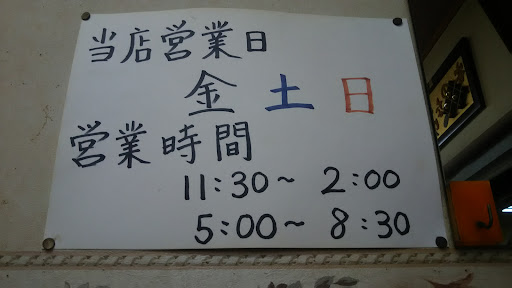 当店営業日
金 土 日
営業時間
11:30~ 2:00
5:00~ 8:30